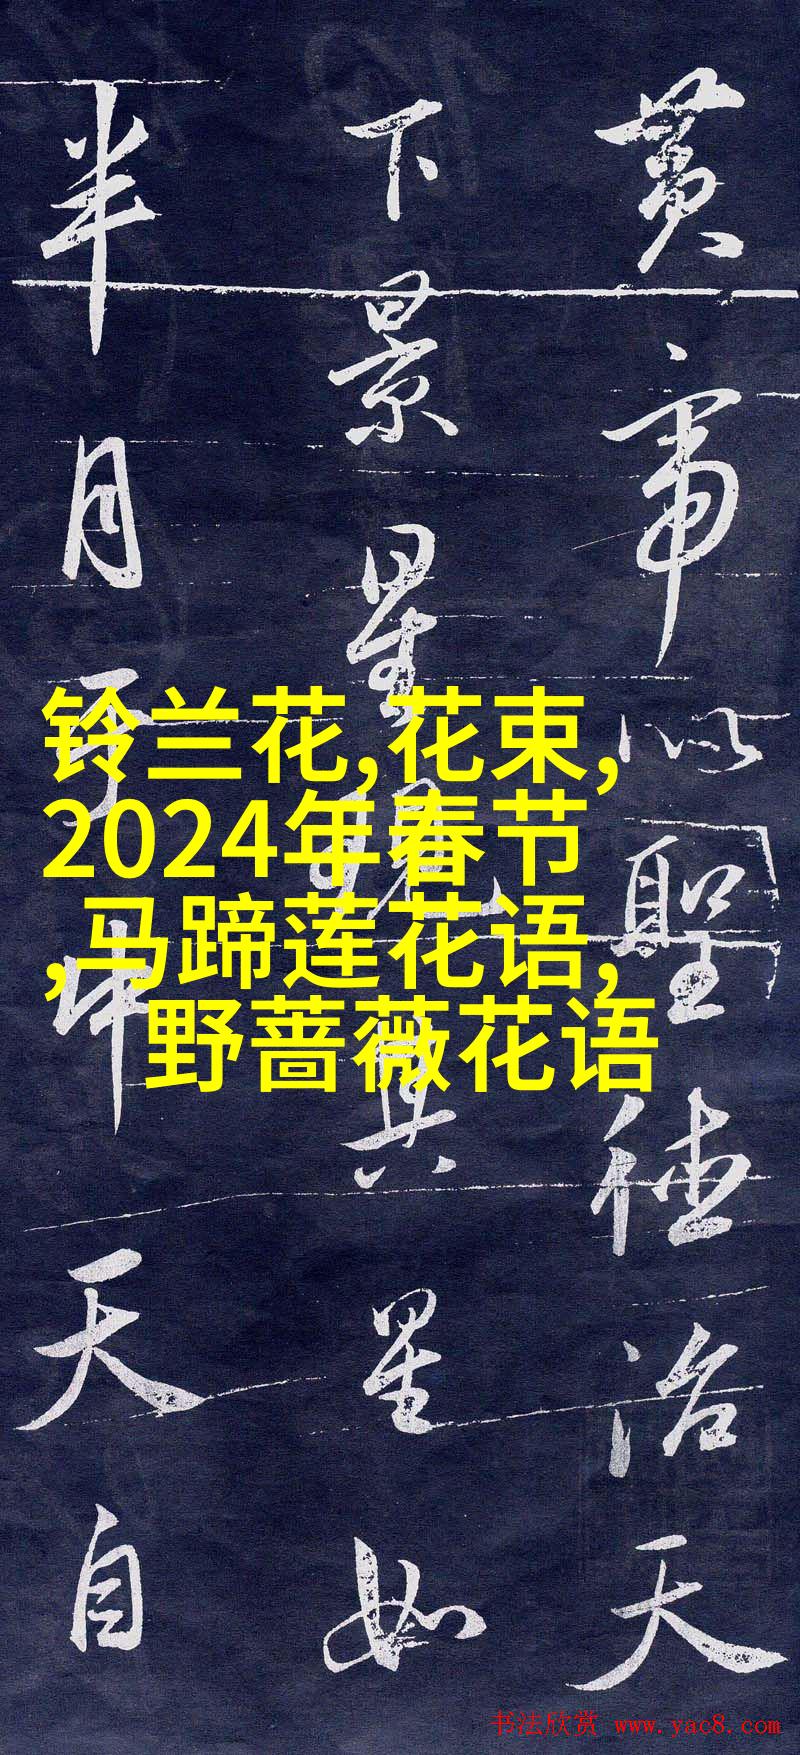 黄帝以聖德治天
下景星現其星如
半月天自
铃兰花,花束,
2024年春节
,马蹄莲花语,
野蔷薇花语
书法欣赏 www.yac8.com